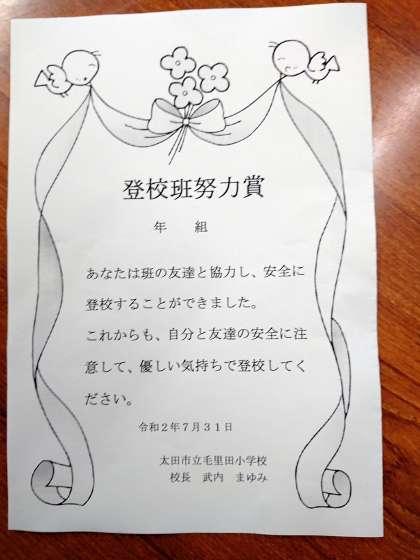 登校班努力賞
年　組
あなたは班の友達と協力し、安全に
登校することができました。
これからも、自分と友達の安全に注
意して、優しい気持ちで登校してく
ださい。
令和２年７月３１日
太田市立毛里田小学校
校長　武内　まゆみ